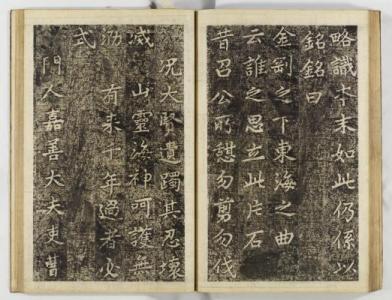 略識本末如此仍係以
銘銘曰
金剛之下東海之曲
云誰之思立此片石
昔召公所憩勿剪勿伐
况大賢遺躅其忍壞
山靈海神呵護無
有來千年過者必
式
門人嘉善大夫吏曹